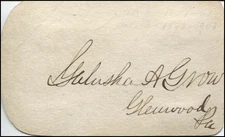 Galusha A Grow
Glenwood
Pa